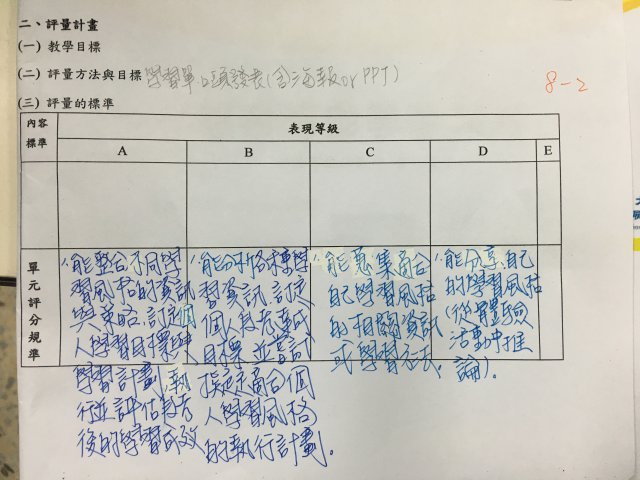 二、評量計畫
(一) 教學目標
(二) 評量方法與目標 學習單、口頭發表(含海報or PPT)
8-2
(三) 評量的標準
內容
標準
表現等級
A B C D E
單元評分規準
能整合不同學
習風格的資訊
與策略,訂定個
人學習目標與
學習計劃,執
行並評估
後的學習成效
能分析
習資訊,訂定
個人
目標,並嘗試
擬定適合個
人學習風格
的執行計劃.
能蒐集適合
自己學習風格
的相關資訊
或學習方式.
能分享自己
的學習風格
(從體驗
活動中推
論).